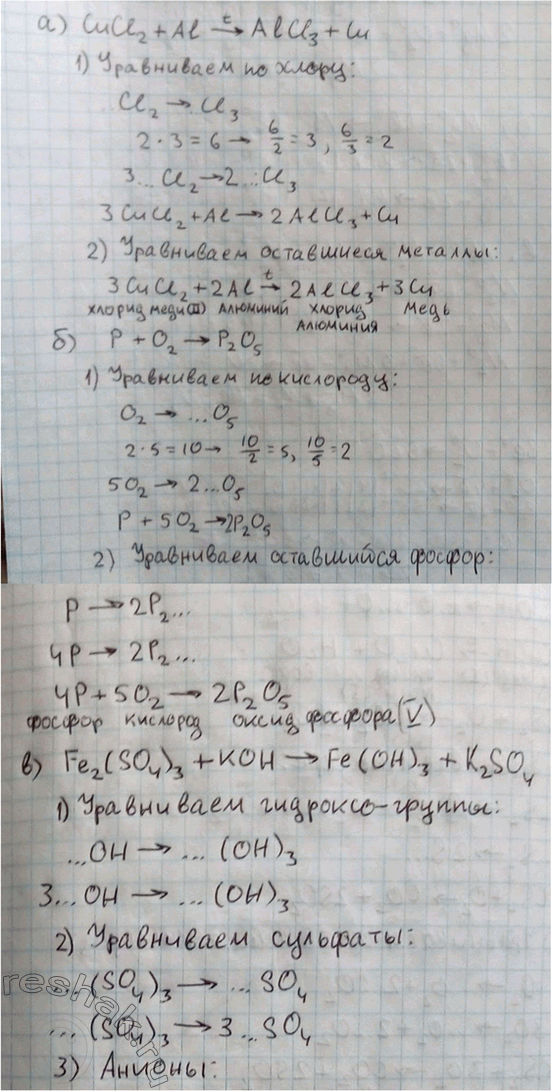 а) CuCl₂ + Al →ᵗ AlCl₃ + Cu
1) Уравниваем по хлору:
Cl₂ → Cl₃
2·3 = 6 → 6/2 = 3, 6/3 = 2
3...Cl₂ → 2...Cl₃
3CuCl₂ + Al → 2AlCl₃ + Cu
2) Уравниваем оставшиеся металлы:
3CuCl₂ + 2Al →ᵗ 2AlCl₃ + 3Cu
хлорид меди(II) алюминий хлорид медь
алюминия
б) P + O₂ → P₂O₅
1) Уравниваем по кислороду:
O₂ → ...O₅
2·5 = 10 → 10/2 = 5, 10/5 = 2
5O₂ → 2...O₅
P + 5O₂ → 2P₂O₅
2) Уравниваем оставшийся фосфор:
P → 2P₂...
4P → 2P₂...
4P + 5O₂ → 2P₂O₅
фосфор кислород оксид фосфора(V)
в) Fe₂(SO₄)₃ + KOH → Fe(OH)₃ + K₂SO₄
1) Уравниваем гидроксо-группы:
...OH → ...(OH)₃
3...OH → ...(OH)₃
2) Уравниваем сульфаты:
...(SO₄)₃ → ...SO₄
...(SO₄)₃ → 3...SO₄
3) Анионы:
reshak.ru